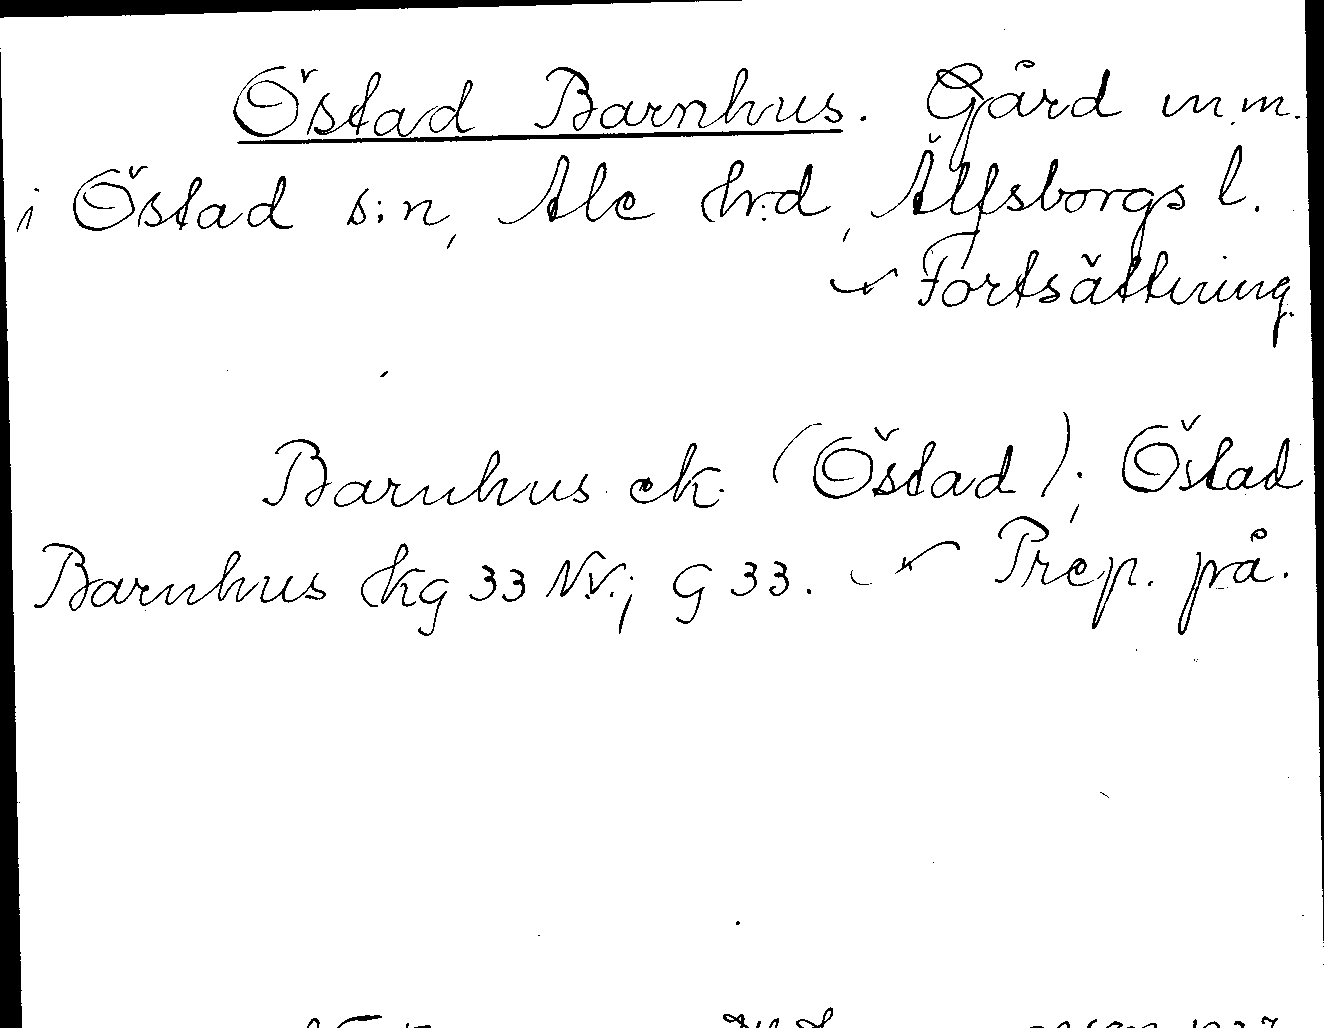 Östad Barnhus. Gård m.m.
i Östad s:n, Ale h:d, Älfsborgs l.
Fortsättning.
Barnhus ek. (Östad); Östad
Barnhus Hkg 33 NV.; G 33. Prep. på.